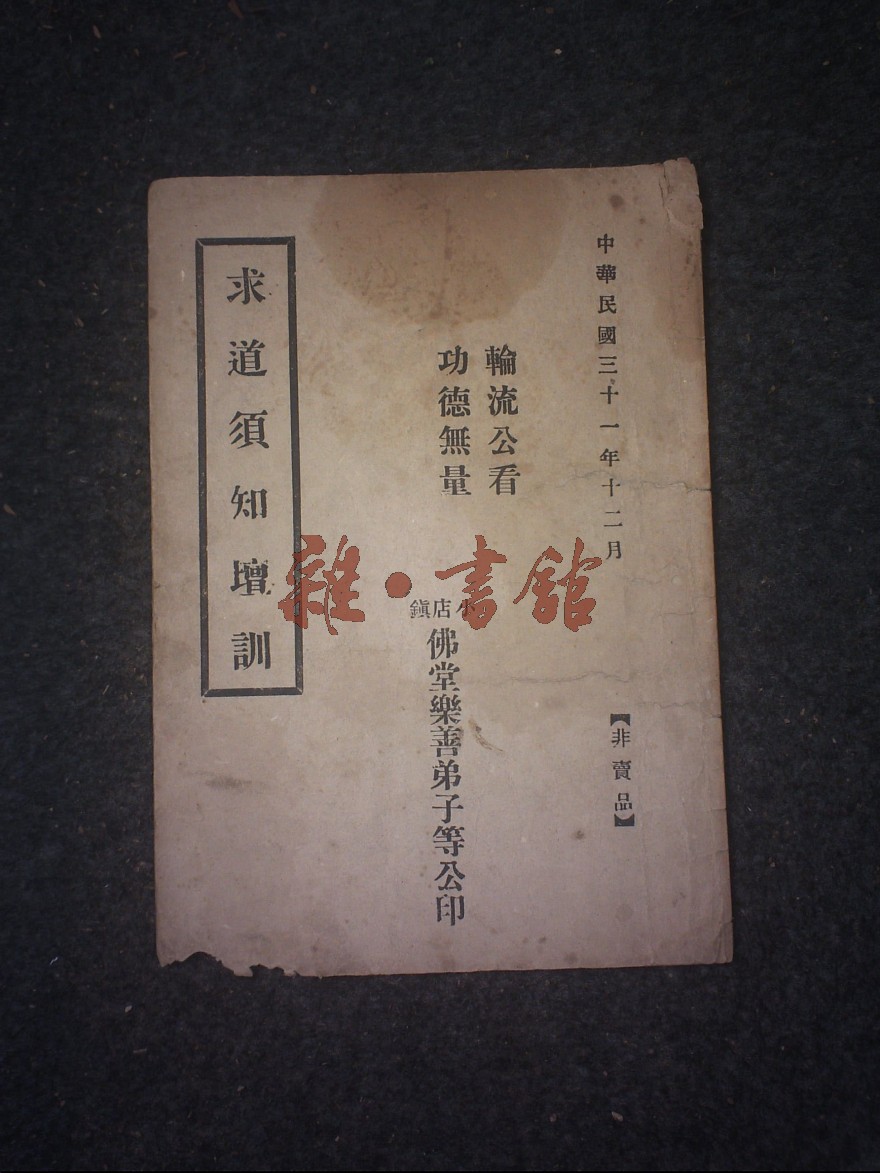 中華民國三十一年十二月
【非賣品】
輪流公看
功德無量
小店鎮
佛堂樂善弟子等公印
求道須知壇訓
雜·書館